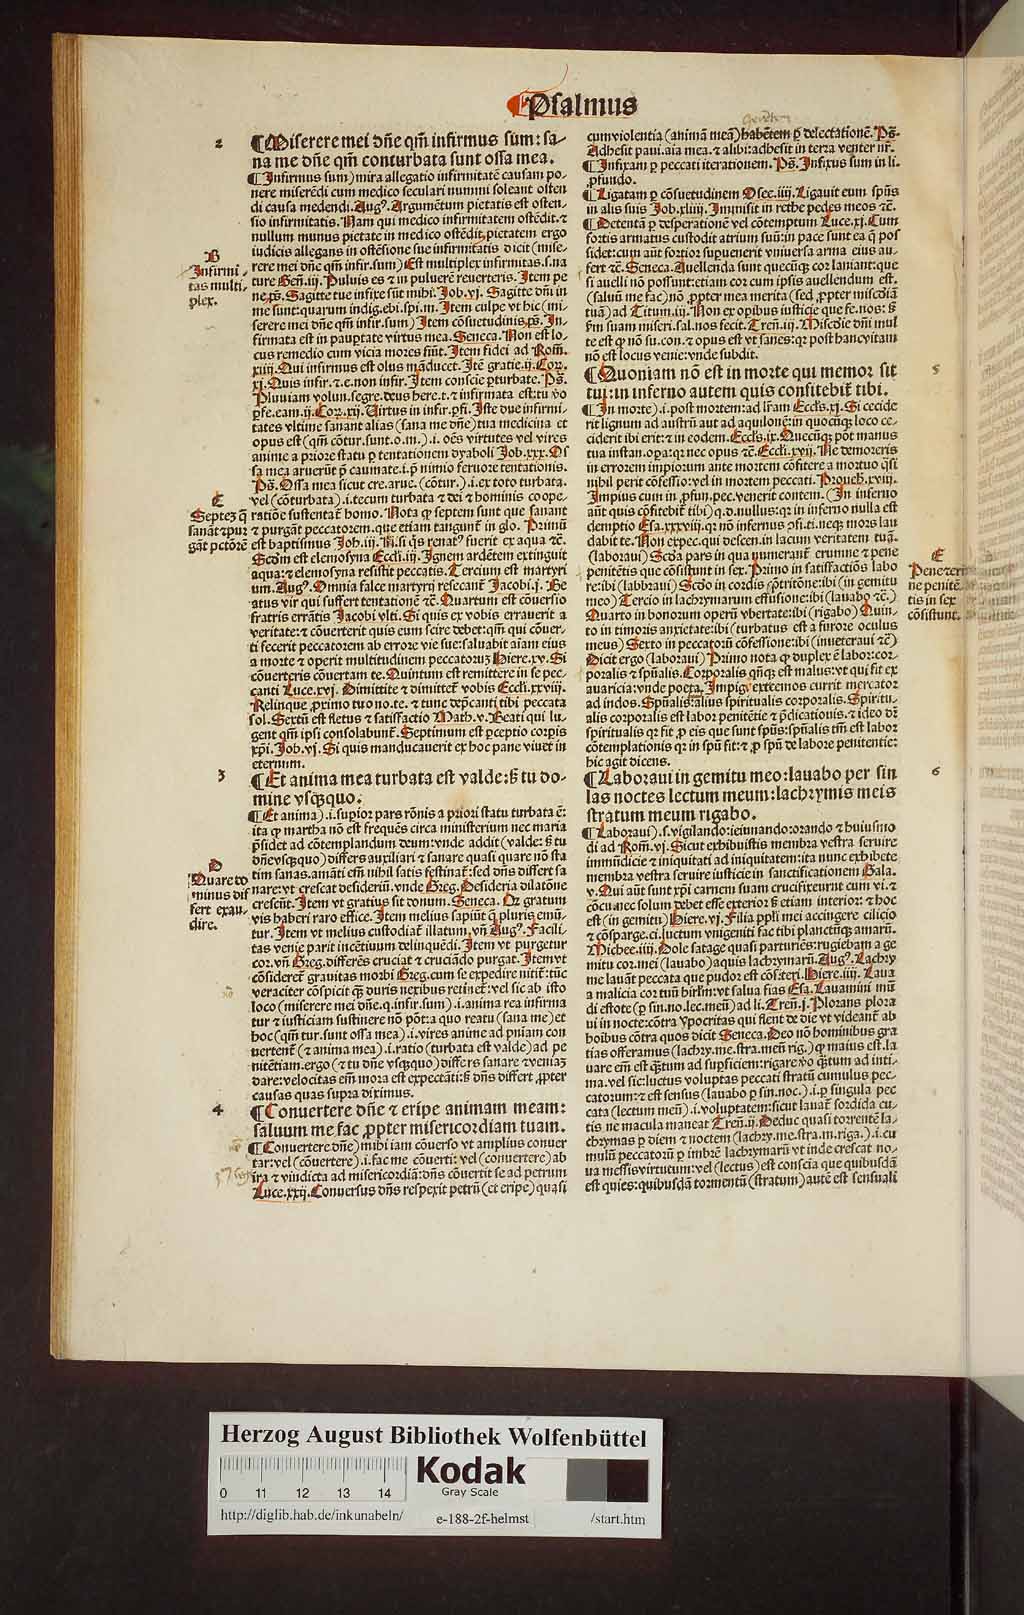 Psalmus
2
¶Miserere mei dñe qm̃ infirmus sum: sa-
na me dñe qm̃ conturbata sunt ossa mea.
¶Infirmus sum) mira allegatio infirmitatẽ causam po-
nere miserẽdi cum medico seculari nummi soleant osten
di causa medendi. Augꝰ. Argumẽtum pietatis est osten-
sio infirmitatis. Nam qui medico infirmitatem ostẽdit. ⁊
nullum munus pietate in medico ostẽdit, pietatem ergo
iudicis allegans in ostẽsione sue infirmitatis dicit (mise-
rere mei dñe qm̃ infir. sum) Est multiplex infirmitas. s. na
ture Geñ. iij. Puluis es ⁊ in puluerẽ reuerteris. Item pe
ne, p̃s. Sagitte tue infixe sũt mihi. Job. vj. Sagitte dñi in
me sunt: quarum indig. ebi. spi. m. Item culpe vt hic (mi-
serere mei dñe qm̃ infir. sum) Item cõsuetudinis, p̃s. In-
firmata est in pauptate virtus mea. Seneca. Non est lo-
cus remedio cum vicia mores sũt. Item fidei ad Rom̃.
xiiij. Qui infirmus est olus mãducet. Itẽ gratie. ij. Cor.
xj. Quis infir. ⁊. e. non infir. Item conscie ꝑturbate. Ps̃.
Pluuiam volun. segre. deus here. t. ⁊ infirmata est: tu ṽo
ꝑfe. eam. ij. Cor. xij. Uirtus in infir. ꝑfi. Iste due infirmi-
tates vltime sanant alias (sana me dñe) tua medicina et
opus est (qm̃ cõtur. sunt. o. m.) .i. oẽs virtutes vel vires
anime a priore statu ꝑ tentationem dyaboli Job. xxx. Os
sa mea aruerũt p̃ caumate. i. p̃ nimio feruore tentationis.
Ps̃. Ossa mea sicut cre. arue. (cõtur.) .i. ex toto turbata.
vel (cõturbata) .i. tecum turbata ⁊ dei ⁊ hominis coope-
ratiõe sustentat̃ homo. Nota ꝙ septem sunt que sanant
⁊ purgãt peccatorem. que etiam tangunt̃ in glo. Primũ
est baptismus Joh. iij. Ni. si q̃s renatꝰ fuerit ex aqua ⁊c̃.
Scd̃m est elemosyna Eccli. iij. Ignem ardẽtem extinguit
aqua: ⁊ elemosyna resistit peccatis. Tercium est martyri
um. Augꝰ. Omnia falce martyrij resecant̃ Jacobi. j. Be
atus vir qui suffert tentationẽ ⁊c̃. Quartum est cõuersio
fratris errãtis Jacobi vlt. Si quis ex vobis errauerit a
veritate: ⁊ cõuerterit quis eum scire debet: qm̃ qui cõuer-
ti fecerit peccatorem ab errore vie sue: saluabit aĩam eius
a morte ⁊ operit multitudinem peccatorum Hiere. xv. Si
cõuerteris cõuertam te. Quintum est remittere in se pec-
canti Luce. xvj. Dimittite ⁊ dimittet̃ vobis Eccli. xxviij.
Relinque ꝓximo tuo no. te. ⁊ tunc dep̃canti tibi peccata
sol. Sextũ est fletus ⁊ satisfactio Math. v. Beati qui lu-
gent qm̃ ipsi consolabunt̃. Septimum est ꝑceptio corpis
xp̃i. Job. vj. Si quis manducauerit ex hoc pane viuet in
eternum.
B
Infirmi-
tas multi-
plex.
C
Septez q̃
sanãt ⁊ pur
gãt pctõrẽ
3
¶Et anima mea turbata est valde: s̃ tu do-
mine vsq̃quo.
¶Et anima) .i. supior pars rõnis a priori statu turbata ẽ:
ita ꝙ martha nõ est frequẽs circa ministerium nec maria
p̃sidet ad cõtemplandum deum: vnde addit (valde: s̃ tu
dñe vsq̃quo) differs auxiliari ⁊ sanare quasi quare nõ sta
tim sanas. amãti em̃ nihil satis festinat̃: sed dñs differt sa
nare: vt crescat desideriũ. vnde Greg. Desideria dilatõne
crescũt. Item vt gratius sit donum. Seneca. Oz gratum
vis haberi raro effice. Item melius sapiũt q̃ pluris emũ-
tur. Item vt melius custodiat̃ illatum. vñ Augꝰ. Facili-
tas venie parit incẽtiuum delinquẽdi. Item vt purgetur
cor. vñ Greg. differẽs cruciat ⁊ cruciãdo purgat. Item vt
cõsideret̃ grauitas morbi Greg. cum se expedire nitit̃: tũc
veraciter cõspicit q̃ duris nexibus retinet̃: vel sic ab isto
loco (miserere mei dñe. q. infir. sum) .i. anima rea infirma
tur ⁊ iusticiam sustinere nõ põt: a quo reatu (sana me) et
hoc (qm̃ tur. sunt ossa mea) .i. vires anime ad p̃uiam con
uertent̃ (⁊ anima mea) .i. ratio (turbata est valde) ad pe
nitẽtiam. ergo (⁊ tu dñe vsq̃quo) differs sanare ⁊ veniaz
dare: velocitas em̃ mora est expectãti: s̃ dñs differt ꝓpter
causas quas supra diximus.
D
Quare do
minus dif
fert exau-
dire.
4
¶Conuertere dñe ⁊ eripe animam meam:
saluum me fac ꝓpter misericordiam tuam.
¶Conuertere dñe) mihi iam cõuerso vt amplius conuer
tar: vel (cõuertere) .i. fac me cõuerti: vel (conuertere) ab
ira ⁊ vindicta ad misericordiã: dñs cõuertit se ad petrum
Luce. xxij. Conuersus dñs respexit petrũ (et eripe) quasi
cum violentia (animã meã) habẽtem ꝑ delectationẽ. Ps̃.
Adhesit paui. aĩa mea. ⁊ alibi: adhesit in terra venter nr̃.
¶Infixam ꝑ peccati iterationem. Ps̃. Infixus sum in li.
ꝓfundo.
¶Ligatam ꝑ cõsuetudinem Osee. iiij. Ligauit eum spũs
in alis suis Job. xliij. Immisit in rethe pedes meos ⁊c̃.
¶Detentã ꝑ desperationẽ vel cõtemptum Luce. xj. Cum
fortis armatus custodit atrium suũ: in pace sunt ea q̃ pos
sidet: cum aũt fortior supuenerit vniuersa arma eius au-
fert ⁊c̃. Seneca. Auellenda sunt quecũq̃ cor laniant: que
si auelli nõ possunt: etiam cor cum ipsis auellendum est.
(saluũ me fac) nõ ꝓpter mea merita (sed ꝓpter misc̃diã
tuã) ad Titum. iij. Non ex opibus iusticie que fe. nos: s̃
s̃m suam miseri. sal. nos fecit. Tren̄. iij. Misc̃die dñi mul
te est ꝙ nõ su. con. ⁊ opus est vt sanes: qr post hanc vitam
nõ est locus venie: vnde subdit.
5
¶Quoniam nõ est in morte qui memor sit
tui: in inferno autem quis confitebit̃ tibi.
¶In morte) .i. post mortem: ad lr̃am Eccls. xj. Si cecide
rit lignum ad austrũ aut ad aquilonẽ: in quocũq̃ loco ce-
ciderit ibi erit: ⁊ in eodem. Eccls. ix. Quecũq̃ põt manus
tua instan. opa: qr nec opus ⁊c̃. Eccli. xvij. Ne demoreris
in errorem impiorum ante mortem cõfitere a mortuo q̃si
nihil perit cõfessio: vel in mortem peccati. Prouerb. xviij.
Impius cum in ꝓfun. pec. venerit contem. (In inferno
aũt quis cõfitebit̃ tibi) q. d. nullus: qr in inferno nulla est
demptio Esa. xxxviij. qr nõ infernus ꝯfi. ti. neq̃ mors lau
dabit te. Non expec. qui descen. in lacum veritatem tuã.
(laboraui) Scd̃a pars in qua numerant̃ erumne ⁊ pene
penitẽtis que cõsistunt in sex. Primo in satisfactiõs labo
re: ibi (labbraui) Scd̃o in cordis cõtritõne: ibi (in gemitu
meo) Tercio in lachrymarum effusione: ibi (lauabo ⁊c̃.)
Quarto in bonorum operũ vbertate: ibi (rigabo) Quin-
to in timoris anxietate: ibi (turbatus est a furore oculus
meus) Sexto in peccatorũ cõfessione: ibi (inueteraui ⁊c̃)
Dicit ergo (laboraui) Primo nota ꝙ duplex ẽ labor: cor-
poralis ⁊ spũalis. Corporalis qñq̃ est malus: vt qui fit ex
auaricia: vnde poeta. Impiger extremos currit mercator
ad indos. Spũalis: alius spiritualis corporalis. Spiritu-
alis corporalis est labor penitẽtie ⁊ p̃dicationis. ⁊ ideo dr̃
spiritualis qr fit ꝓ eis que sunt spũs: spũalis tm̃ est labor
cõtemplationis qr in spũ fit: ⁊ ꝓ spũ de labore penitentie:
hic agit dicens.
E
Pene ⁊ eru
ne penitẽ-
tis in sex
cõsistunt.
6
¶Laboraui in gemitu meo: lauabo per sin
las noctes lectum meum: lachrymis meis
stratum meum rigabo.
¶Laboraui) .s. vigilando: ieiunando: orando ⁊ huiusmo
di ad Rom̃. vj. Sicut exhibuistis membra vestra seruire
immũdicie ⁊ iniquitati ad iniquitatem: ita nunc exhibete
membra vestra seruire iusticie in sanctificationem Gala.
v. Qui aũt sunt xp̃i carnem suam crucifixerunt cum vi. ⁊
cõcu. nec solum debet esse exterior s̃ etiam interior: ⁊ hoc
est (in gemitu) Hiere. vj. Filia ppli mei accingere cilicio
⁊ cõsparge. ci. luctum vnigeniti fac tibi planctũq̃ amarũ.
Michee. iiij. Dole satage quasi parturiẽs: rugiebam a ge
mitu cor. mei (lauabo) aquis lachrymarũ. Augꝰ. Lachry
me lauãt peccata que pudor est cõfiteri. Hiere. iiij. Laua
a malicia cor tuũ hirlm̃: vt salua fias Esa. Lauamini mũ
di estote (ꝑ sin. no. lec. meũ) ad li. Tren̄. j. Plorans plora
ui in nocte: cõtra ypocritas qui flent de die vt videant̃ ab
hoibus cõtra quos dicit Seneca. Deo nõ hominibus gra
tias offeramus (lachry. me. stra. meũ rig.) ꝙ maius est. la
uare em̃ est q̃tum ad supficiem: rigare ṽo q̃tum ad inti-
ma. vel sic: luctus voluptas peccati stratũ cumulus pec-
catorum: ⁊ est sensus (lauabo ꝑ sin. noc.) .i. ꝑ singula pec
cata (lectum meũ) .i. voluptatem: sicut lauat̃ sordida cu-
tis ne macula maneat Tren̄. ij. Deduc quasi torrentẽ la-
chrymas ꝑ diem ⁊ noctem (lachry. me. stra. m. riga.) .i. cu
mulũ peccatorũ ꝑ imbrẽ lachrymarũ vt inde crescat no-
ua messis virtutum: vel (lectus) est conscia que quibusdã
est quies: quibusdã tormentũ (stratum) autẽ est sensuali
Herzog August Bibliothek Wolfenbüttel
Kodak
Gray Scale
0 11 12 13 14
http://diglib.hab.de/inkunabeln/ e-188-2f-helmst /start.htm